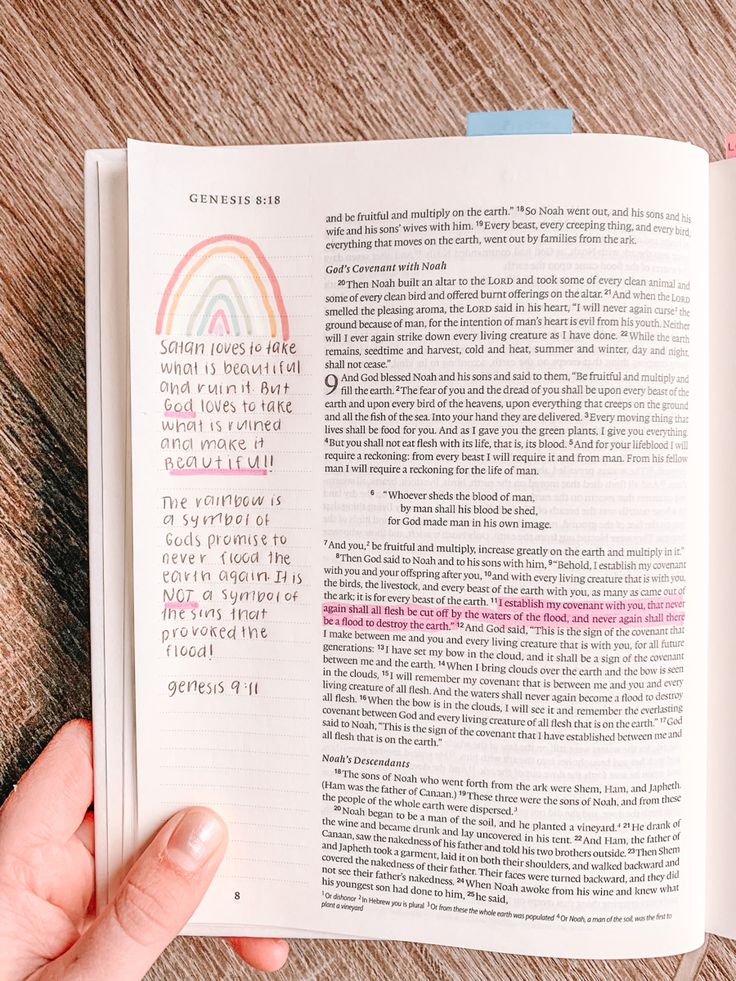 GENESIS 8:18
Satan loves to take
what is beautiful
and ruin it. But
God loves to take
what is ruined
and make it
Beautiful!
The rainbow is
a symbol of
Gods promise to
never flood the
earth again. It is
NOT a symbol of
the sins that
provoked the
flood!
genesis 9:11
8
and be fruitful and multiply on the earth.” 18 So Noah went out, and his sons and his
wife and his sons’ wives with him. 19 Every beast, every creeping thing, and every bird,
everything that moves on the earth, went out by families from the ark.
God’s Covenant with Noah
20 Then Noah built an altar to the LORD and took some of every clean animal and
some of every clean bird and offered burnt offerings on the altar. 21 And when the LORD
smelled the pleasing aroma, the LORD said in his heart, “I will never again curse 1 the
ground because of man, for the intention of man’s heart is evil from his youth. Neither
will I ever again strike down every living creature as I have done. 22 While the earth
remains, seedtime and harvest, cold and heat, summer and winter, day and night,
shall not cease.”
9 And God blessed Noah and his sons and said to them, “Be fruitful and multiply and
fill the earth. 2 The fear of you and the dread of you shall be upon every beast of the
earth and upon every bird of the heavens, upon everything that creeps on the ground
and all the fish of the sea. Into your hand they are delivered. 3 Every moving thing that
lives shall be food for you. And as I gave you the green plants, I give you everything.
4 But you shall not eat flesh with its life, that is, its blood. 5 And for your lifeblood I will
require a reckoning: from every beast I will require it and from man. From his fellow
man I will require a reckoning for the life of man.
6 “Whoever sheds the blood of man,
by man shall his blood be shed,
for God made man in his own image.
7 And you, 2 be fruitful and multiply, increase greatly on the earth and multiply in it.”
8 Then God said to Noah and to his sons with him, 9 “Behold, I establish my covenant
with you and your offspring after you, 10 and with every living creature that is with you,
the birds, the livestock, and every beast of the earth with you, as many as came out of
the ark; it is for every beast of the earth. 11 I establish my covenant with you, that never
again shall all flesh be cut off by the waters of the flood, and never again shall there
be a flood to destroy the earth.” 12 And God said, “This is the sign of the covenant that
I make between me and you and every living creature that is with you, for all future
generations: 13 I have set my bow in the cloud, and it shall be a sign of the covenant
between me and the earth. 14 When I bring clouds over the earth and the bow is seen
in the clouds, 15 I will remember my covenant that is between me and you and every
living creature of all flesh. And the waters shall never again become a flood to destroy
all flesh. 16 When the bow is in the clouds, I will see it and remember the everlasting
covenant between God and every living creature of all flesh that is on the earth.” 17 God
said to Noah, “This is the sign of the covenant that I have established between me and
all flesh that is on the earth.”
Noah’s Descendants
18 The sons of Noah who went forth from the ark were Shem, Ham, and Japheth.
(Ham was the father of Canaan.) 19 These three were the sons of Noah, and from these
the people of the whole earth were dispersed. 3
20 Noah began to be a man of the soil, and he planted a vineyard. 4 21 He drank of
the wine and became drunk and lay uncovered in his tent. 22 And Ham, the father of
Canaan, saw the nakedness of his father and told his two brothers outside. 23 Then Shem
and Japheth took a garment, laid it on both their shoulders, and walked backward and
covered the nakedness of their father. Their faces were turned backward, and they did
not see their father’s nakedness. 24 When Noah awoke from his wine and knew what
his youngest son had done to him, 25 he said,
1 Or dishonor 2 In Hebrew you is plural 3 Or from these the whole earth was populated 4 Or Noah, a man of the soil, was the first to
plant a vineyard